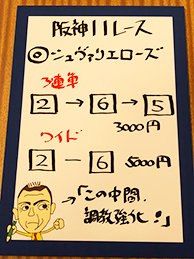 阪神11レース
◎シュヴァリエローズ
3連単
2→6→5
3000円
ワイド
2－6 5000円
→「この中間、
調教強化!」